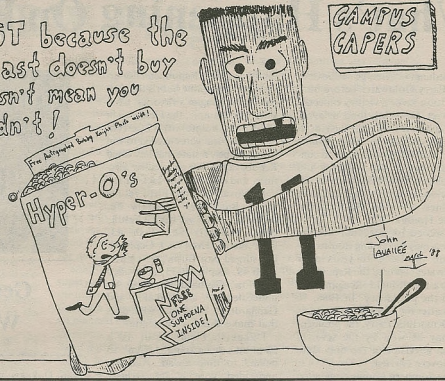 ST because the
east doesn't buy
sn't mean you
dn't!
CAMPUS
CAPERS
Free Autographed Bobby Knight Photo inside!
Hyper-O's
PLUS
ONE
SUBPOENA
INSIDE!
John
LAVALLÉE
'88